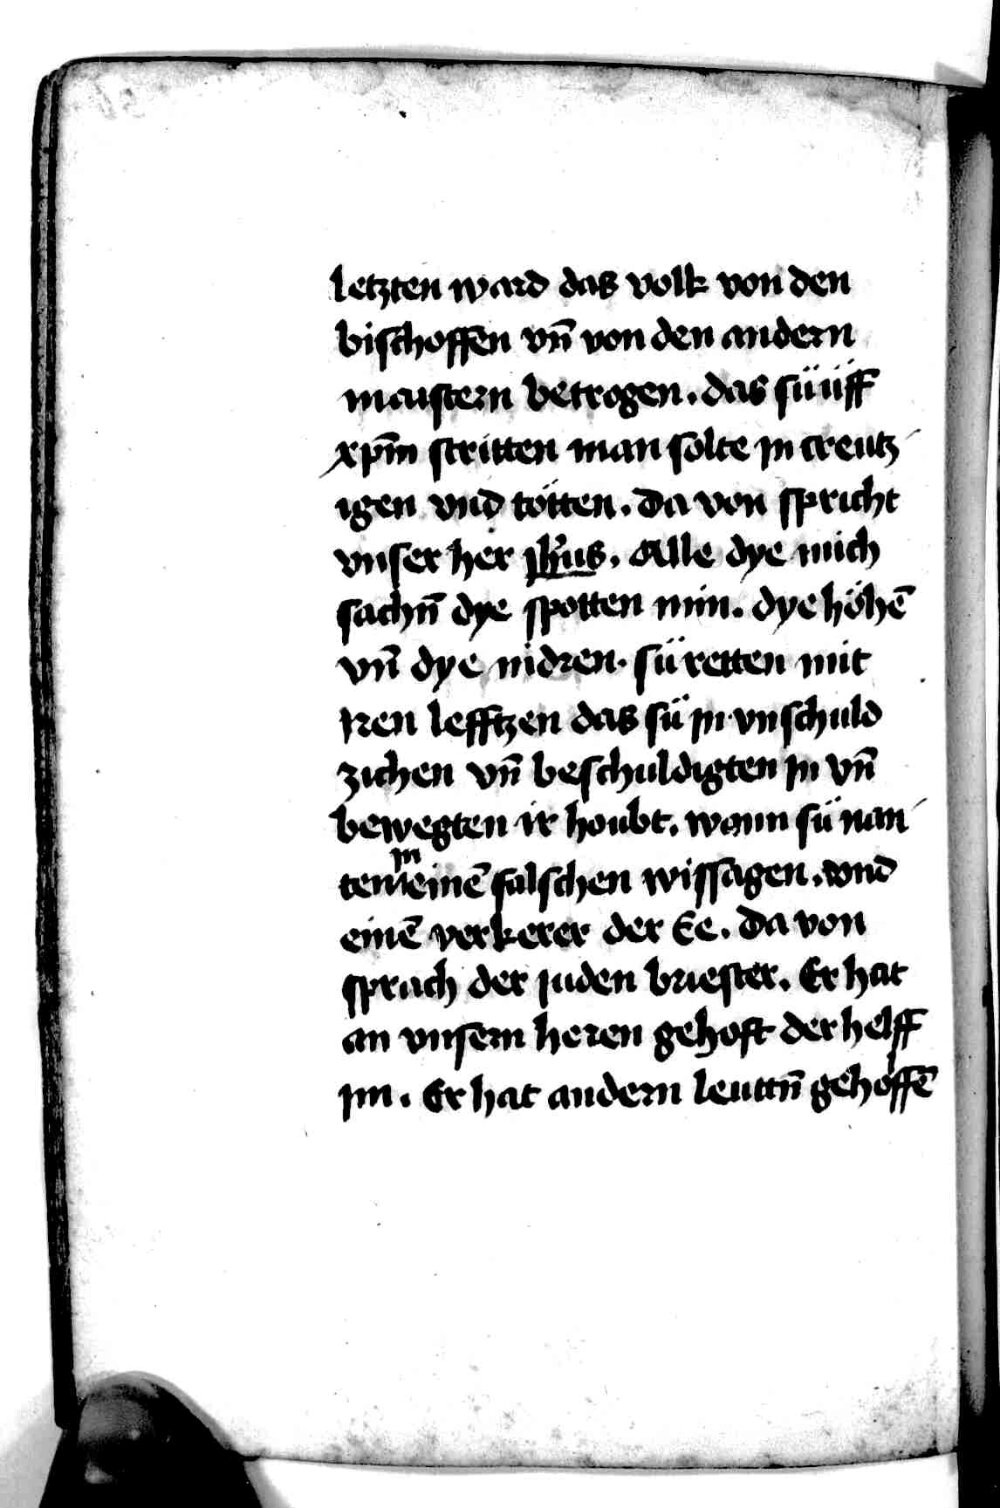 letzten ward das volk von den
bischoffen vn̄ von den andern
maistern betrogen. das sü üff
xp̄m stritten man solte in creutz
igen vnd tötten. Da von spricht
vnser her jh̄us. Alle dye mich
sachn̄ dye spotten min. dye höhē
vn̄ dye nidren. sü retten mit
iren lefftzen das sü in vnschuld
zichen vn̄ beschuldigten in vn̄
bewegten ir houbt. wann sü nan
ten in einē falschen wissagen. vnd
einē verkerer der Ee. Da von
sprach der juden briester. Er hat
an vnsern heren gehoft der helff
im. Er hat andern leuttn̄ geholffē